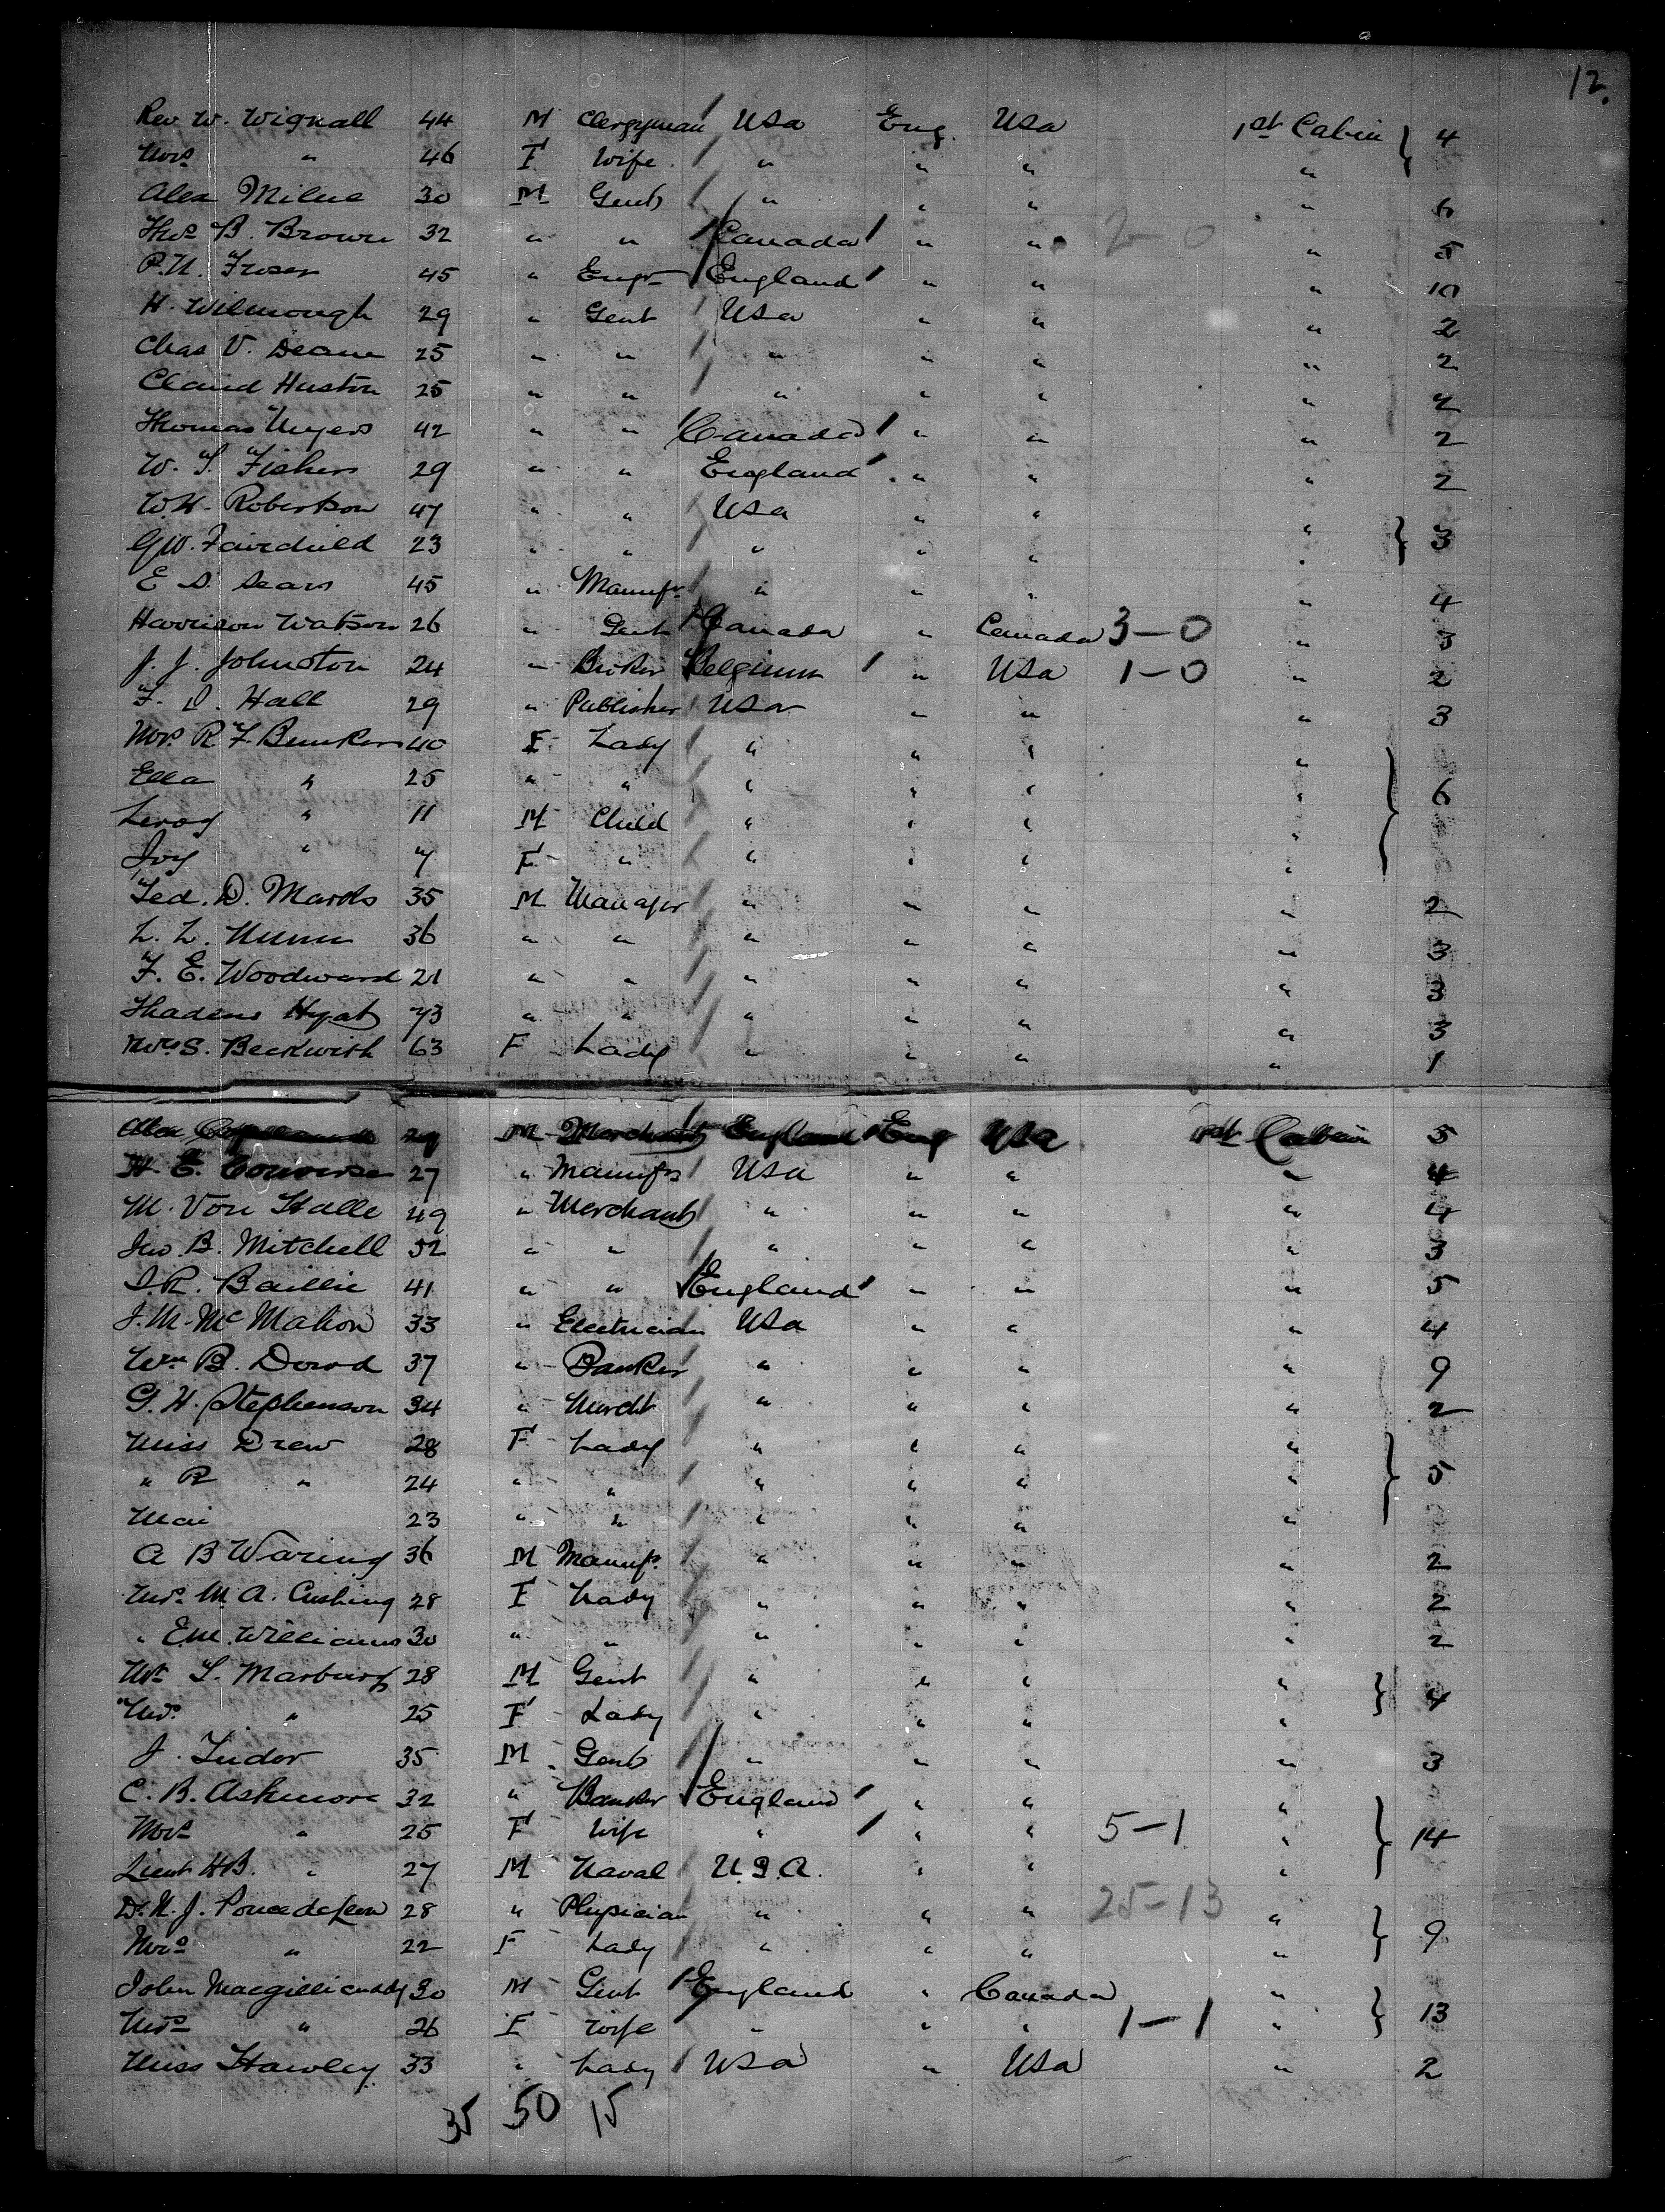 12.
Rev W. Wignall 44 M Clergyman USA Eng. USA 1st Cabin 4
Mrs " 46 F Wife " " " "
Alex Milne 30 M Gent " " " " 6
Thos B. Brown 32 " " Canada " " 2-0 " 5
P.N. Froser 45 " Engr England " " " 10
H. Wilmough 29 " Gent USA " " " 2
Chas V. Deane 25 " " " " " " 2
Claud Huston 25 " " " " " " 2
Thomas Myers 42 " " Canada " " " 2
W. S. Fisher 29 " " England " " " 2
W.H. Robertson 47 " " USA " " "
GW. Fairchild 23 " " " " " " 3
E. D. Sears 45 " Manufr " " " " 4
Harrison Watson 26 " Gent Canada " Canada 3-0 " 3
J. J. Johnston 24 " Broker Belgium " USA 1-0 " 2
F. D. Hall 29 " Publisher USA " " " 3
Mrs R F. Bunker 40 F Lady " " " "
Ella " 25 " " " " " " 6
Leroy " 11 M Child " " " "
Joy " 7 F " " " " "
Ted. D. Marks 35 M Manager " " " " 2
L. L. Nunn 36 " " " " " " 3
F. E. Woodward 21 " " " " " " 3
Thadeus Hyat 73 " " " " " " 3
Mrs S. Beckwith 63 F Lady " " " " 1
Alex 29 M Merchant England Eng USA 1st Cabin 5
H. E. Converse 27 " Manufr USA " " " 4
M. Von Halle 49 " Merchant " " " " 4
Jno. B. Mitchell 52 " " " " " " 3
J.R. Baillie 41 " " England " " " 5
J.M. McMahon 33 " Electrician USA " " " 4
Wm B. Dowd 37 " Banker " " " " 9
G. H. Stephenson 34 " Mercht " " " " 2
Miss Drew 28 F Lady " " " "
" R " 24 " " " " " " 5
Mai 23 " " " " " "
A B Waring 36 M Manufr " " " " 2
Mrs M. A. Cushing 28 F Lady " " " " 2
" E.M. Williams 30 " " " " " " 2
Mr T. Marburg 28 M Gent " " " "
Mrs " 25 F Lady " " " " 4
J. Tudor 35 M Gent " " " " 3
C. B. Ashmore 32 " Banker England " " "
Mrs " 25 F Wife " " " 5-1 " 14
Lieut H.B. " 27 M Naval U.S.A. " " "
Dr. N. J. Ponce de Leon 28 " Physician " " " 25-13 "
Mrs " 22 F Lady " " " " 9
John Macgillicuddy 30 M Gent England " Canada "
Mrs " 26 F Wife " " " 1-1 " 13
Miss Hawley 33 " Lady USA " USA " 2
35 50 15